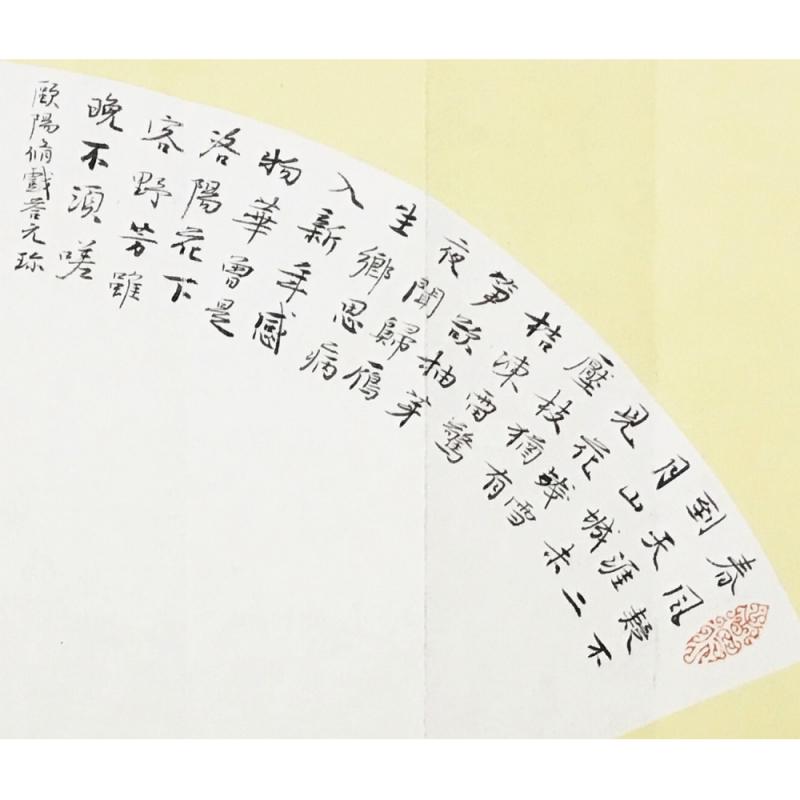 春风疑不
到天涯二
月山城未
見花殘雪
壓枝猶有
桔凍雷驚
笋欲抽芽
夜聞歸雁
生鄉思病
入新年感
物華曾是
洛陽花下
客野芳雖
晚不須嗟
歐陽脩戲答元珍